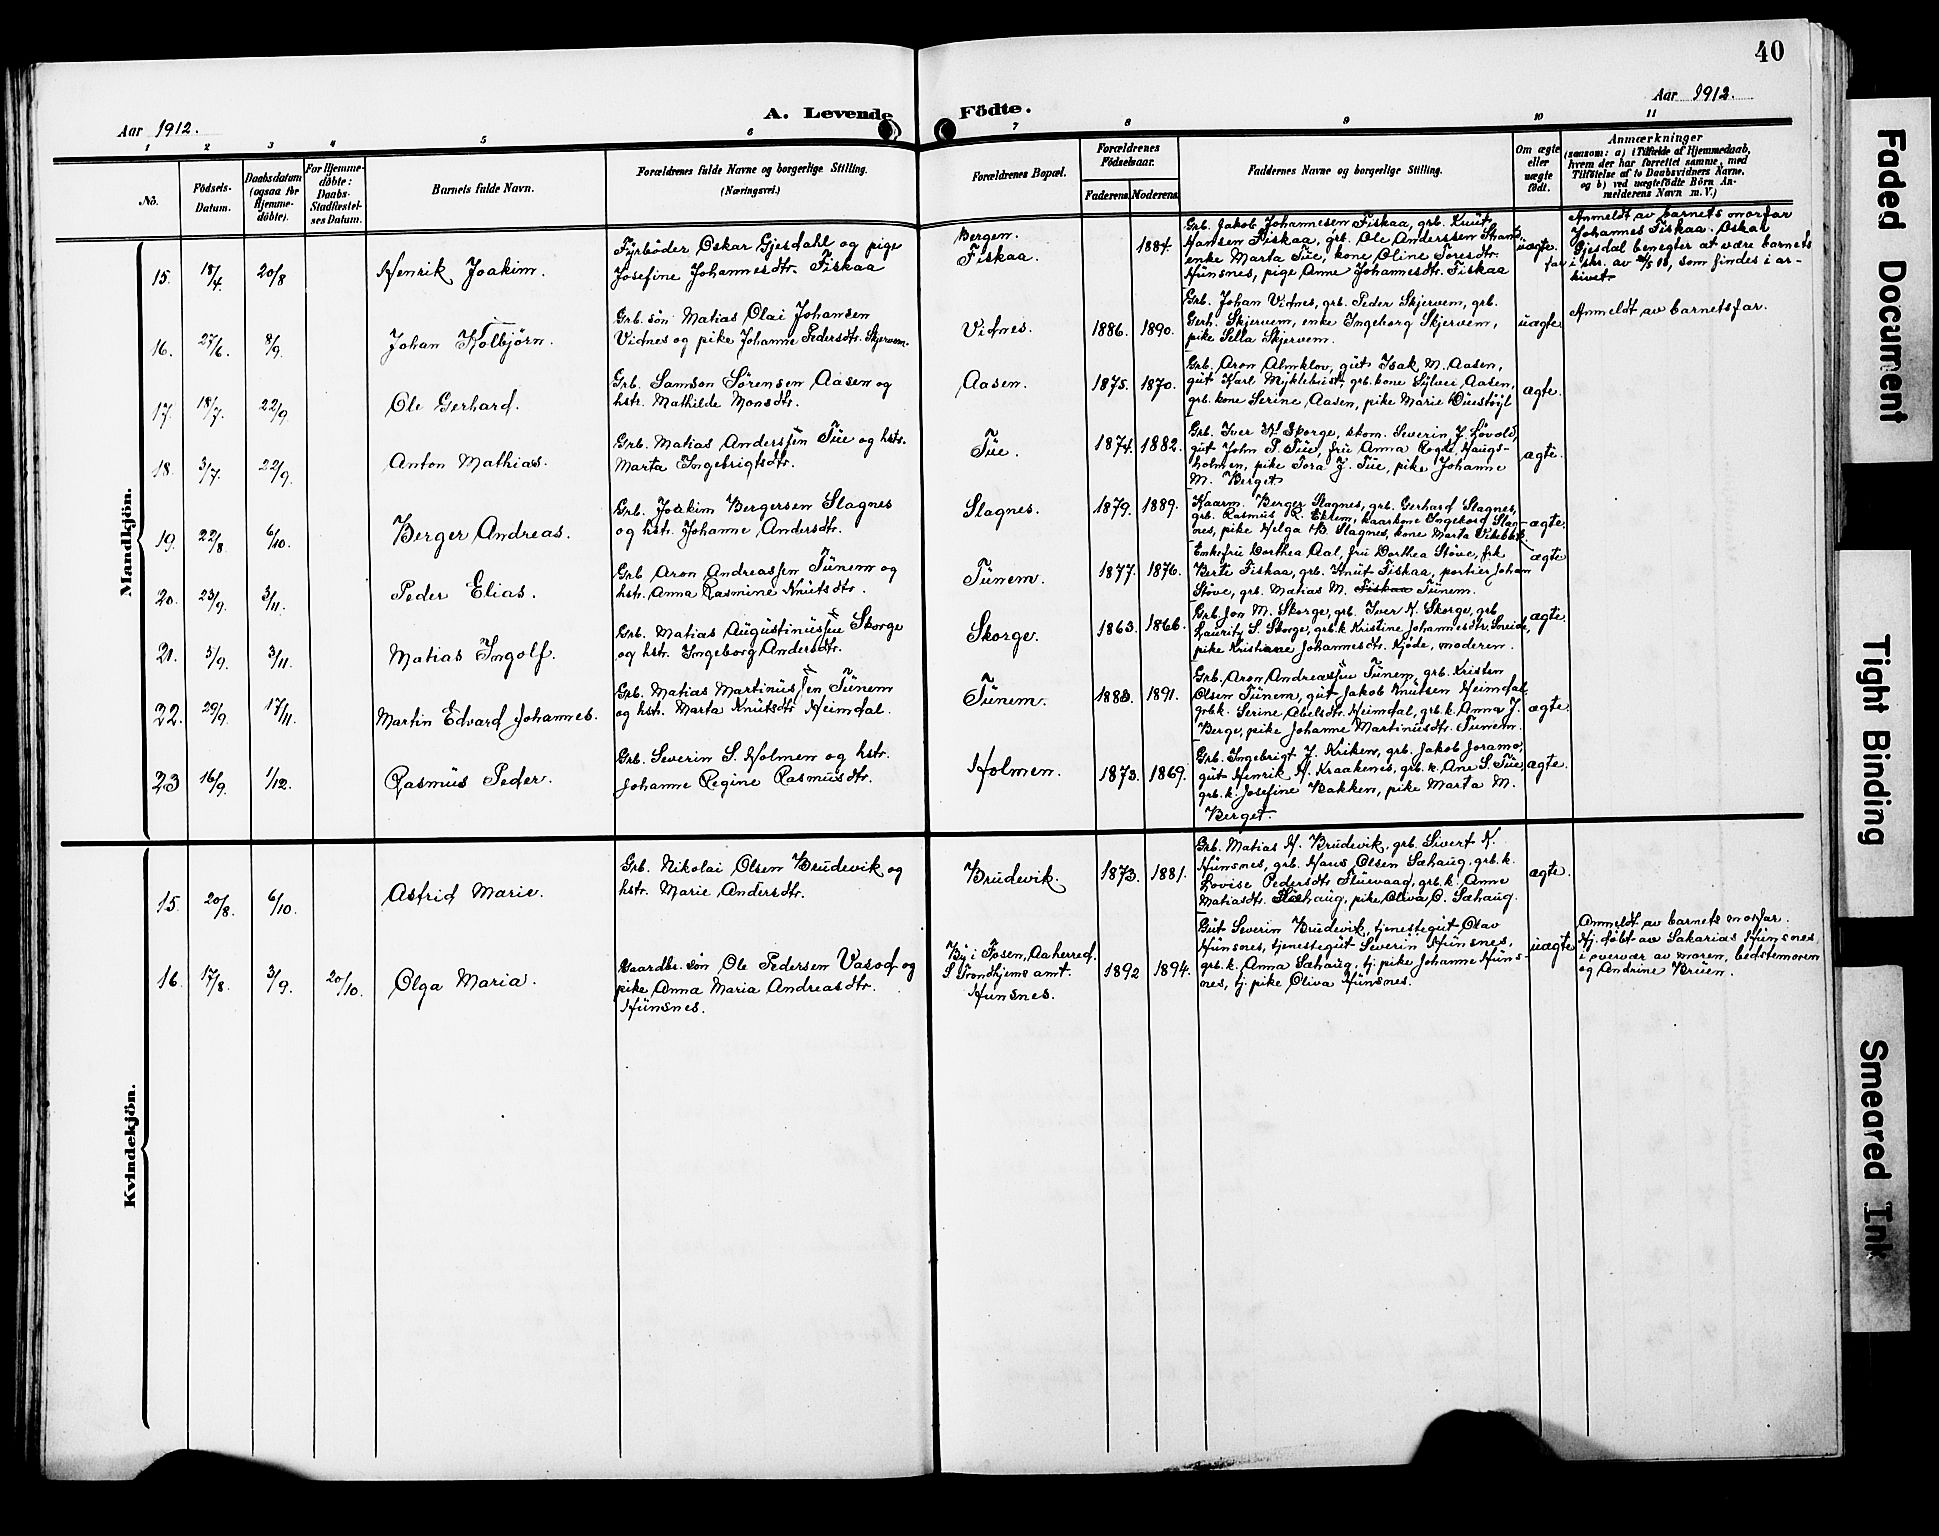 40
A. Levende Födte.
Aar 1912.
Aar 1912.
1 2 3 4 5 6 7 8 9 10 11
No.
Födsels-
Datum.
Daabsdatum
(ogsaa for
Hjemme-
döbte).
For Hjemme-
döbte:
Daabs-
Stadfæstel-
ses Datum.
Barnets fulde Navn.
Forældrenes fulde Navne og borgerlige Stilling.
(Næringsvei.)
Forældrenes Bopæl.
Forældrenes
Födselsaar.
Faderens.
Moderens.
Faddernes Navne og borgerlige Stilling.
Om ægte
eller
uægte
födt.
Anmærkninger
(saasom: a) i Tilfælde af Hjemmedaab,
hvem der har forrettet samme, med
Tilföielse af to Daabsvidners Navne,
og b) ved uægtefödte Börn An-
melderens Navn m. V.)
Mandkjön.
15. 18/4. 20/8
Henrik Joakim.
Fyrbøder Oskar Gjesdahl og pige
Josefine Johannesdtr. Fiskaa
Bergen.
Fiskaa.
1884.
Grb. Jakob Johannesen Fiskaa, grb. Knut
Hansen Fiskaa, grb. Ole Anderssen Strand,
enke Marta Tue, kone Oline Toresdtr.
Hunsnes, pige Anne Johannesdtr. Fiskaa
uægte
Anmeldt av barnets morfar
Johannes Fiskaa. Oskar
Gjesdal benegter at være barnets
far i skr. av som findes i ar-
kivet.
16. 27/6. 8/9.
Johan Kolbjørn.
Grb. søn Matias Olai Johansen
Vidnes og pike Johanne Pedersdtr. Skjervem.
Vidnes.
1886. 1890.
Grb. Johan Vidnes, grb. Peder Skjervem, grb.
Gerh. Skjervem, enke Ingeborg Skjervem,
pike Sella Skjervem.
uægte
Anmeldt av barnets far.
17. 18/7. 22/9.
Ole Gerhard.
Grb. Samson Sørensen Aasen og
hstr. Mathilde Monsdtr.
Aasen.
1875. 1870.
Grb. Aron Almklov, gut Isak M. Aasen,
gut Karl Myklebust, grb. kone Sylvei Aasen,
grb. kone Serine Aasen, pike Marie
ægte.
18. 3/7. 22/9.
Anton Mathias.
Grb. Matias Anderssen Tue og hstr.
Marta Ingebrigtsdtr.
Tue.
1874. 1882.
Grb. Iver K. Skorge, skom. Severin J. Løvold,
gut John P. Tue, fru Anna Rogde Haugs-
holmen, pike Tora J. Tue, pike Johanne
M. Berget.
ægte.
19. 22/8. 6/10.
Berger Andreas.
Grb. Joakim Bergersen Slagnes
og hstr. Johanne Andersdtr.
Slagnes.
1879. 1889.
Kaarm. Berger Slagnes, grb. Gerhard Slagnes,
grb. Rasmus R. Eklem, kaarkone Ingeborg Slag-
nes, pike Helga B. Slagnes, kone Marta
ægte.
20. 23/9. 3/11.
Peder Elias.
Grb. Aron Andreassen Tunem og
hstr. Anna Rasmine Knutsdtr.
Tunem.
1877. 1876.
Enkefru Dorthea Aal, fru Dorthea Støve, frk
Berte Fiskaa, grb. Knut Fiskaa, portier Johan
Støve, grb. Matias M. Fiskaa Tunem.
ægte
21. 3/9. 3/11.
Matias Ingolf.
Grb. Matias Augustinussen Skorge
og hstr. Ingeborg Andersdtr.
Skorge.
1863. 1866.
Grb. Jon M. Skorge, grb. Iver K. Skorge, grb
Lauritz S. Skorge, grb. k Kristine Johannesdtr. Sneide,
pike Kristiane Johannesdtr. Kjøde, moderen.
ægte.
22. 29/9. 17/11.
Martin Edvard Johannes.
Grb. Matias Martinussen Tunem
og hstr. Marta Knutsdtr. Heimdal.
Tunem.
1883. 1891.
Grb. Aron Andreassen Tunem, grb. Kristen
Olsen Tunem, gut Jakob Knutsen Heimdal
grb. k. Serine Abelsdtr. Heimdal, grb. k. Anna J.
Berge, pike Johanne Martinusdtr. Tunem.
ægte.
23 16/9. 1/12.
Rasmus Peder.
Grb. Severin S. Holmen og hstr.
Johanne Regine Rasmusdtr.
Holmen.
1873. 1869.
Grb. Ingebrigt J. Kriken, grb. Jakob Joramo,
gut Henrik H. Kraakenes, grb. k. Ane S. Tue,
grb. k. Josefine Bakken, pike Marta M.
Berget.
ægte.
Kvindekjön.
15. 20/8. 6/10.
Astrid Marie.
Grb. Nikolai Olsen Brudevik og
hstr. Marie Andersdtr.
Brudevik.
1873. 1881.
Grb. Matias H. Brudevik, grb. Sivert K.
Hunsnes, grb. Hans Olsen Sæhaug, grb. k.
Lovise Pedersdtr. Fluevaag, grb. k. Anne
Matiasdtr. Sæhaug, pike Oliva O. Sæhaug.
ægte.
16. 17/8. 3/9. 20/10.
Olga Maria.
Gaardbr. søn Ole Pedersen Vasod og
pike Anna Maria Andreasdtr.
Hunsnes.
By i Fosen, Aa herred.
S. Trondhjems amt.
Hunsnes.
1892 1894.
Gut Severin Brudevik, tjenestegut Olav
Hunsnes, tjenestegut Severin Hunsnes,
grb. k. Anna Sæhaug, tj. pike Johanne Huns-
nes, tj. pike Oliva Hunsnes.
uægte
Anmeldt av barnets morfar.
Hj. døbt av Sakarias Hunsnes
i overvær av moren, bedstemoren
og Andrine Bruen.
Faded Document
Tight Binding
Smeared Ink